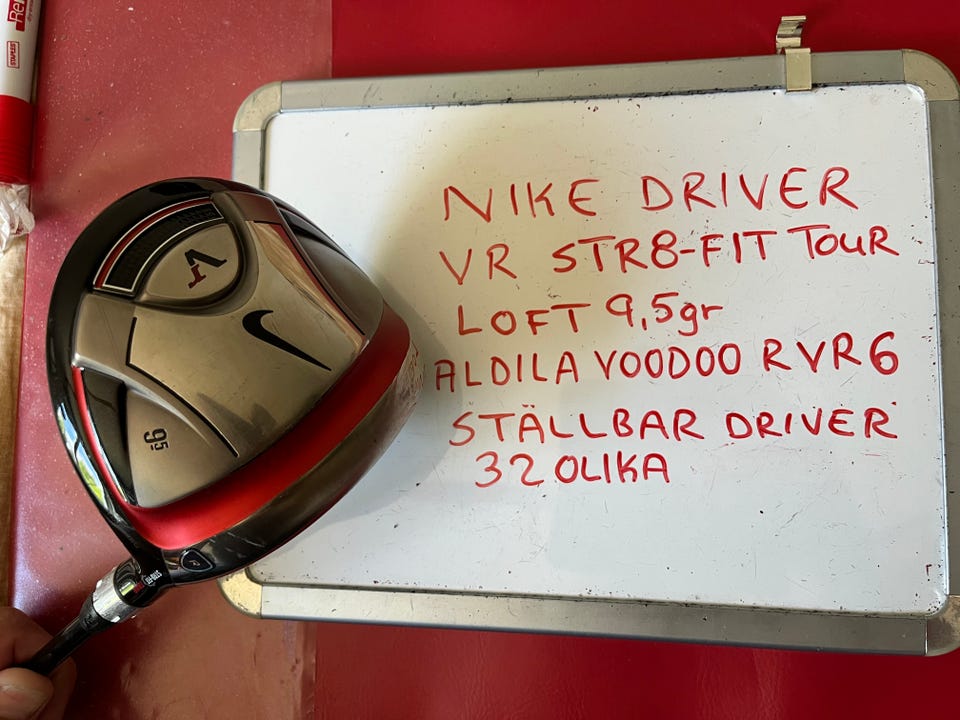 NIKE DRIVER
VR STR8-FIT TOUR
LOFT 9,5gr
ALDILA VOODOO RVR6
STÄLLBAR DRIVER
32 OLIKA
VR
9.5
STR8-FIT
STAPLES